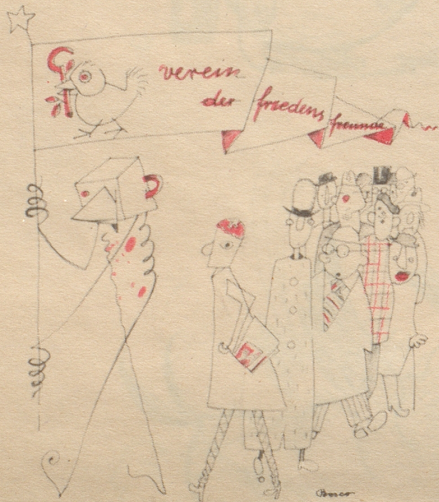 verein
der friedens
freunde
Bosco